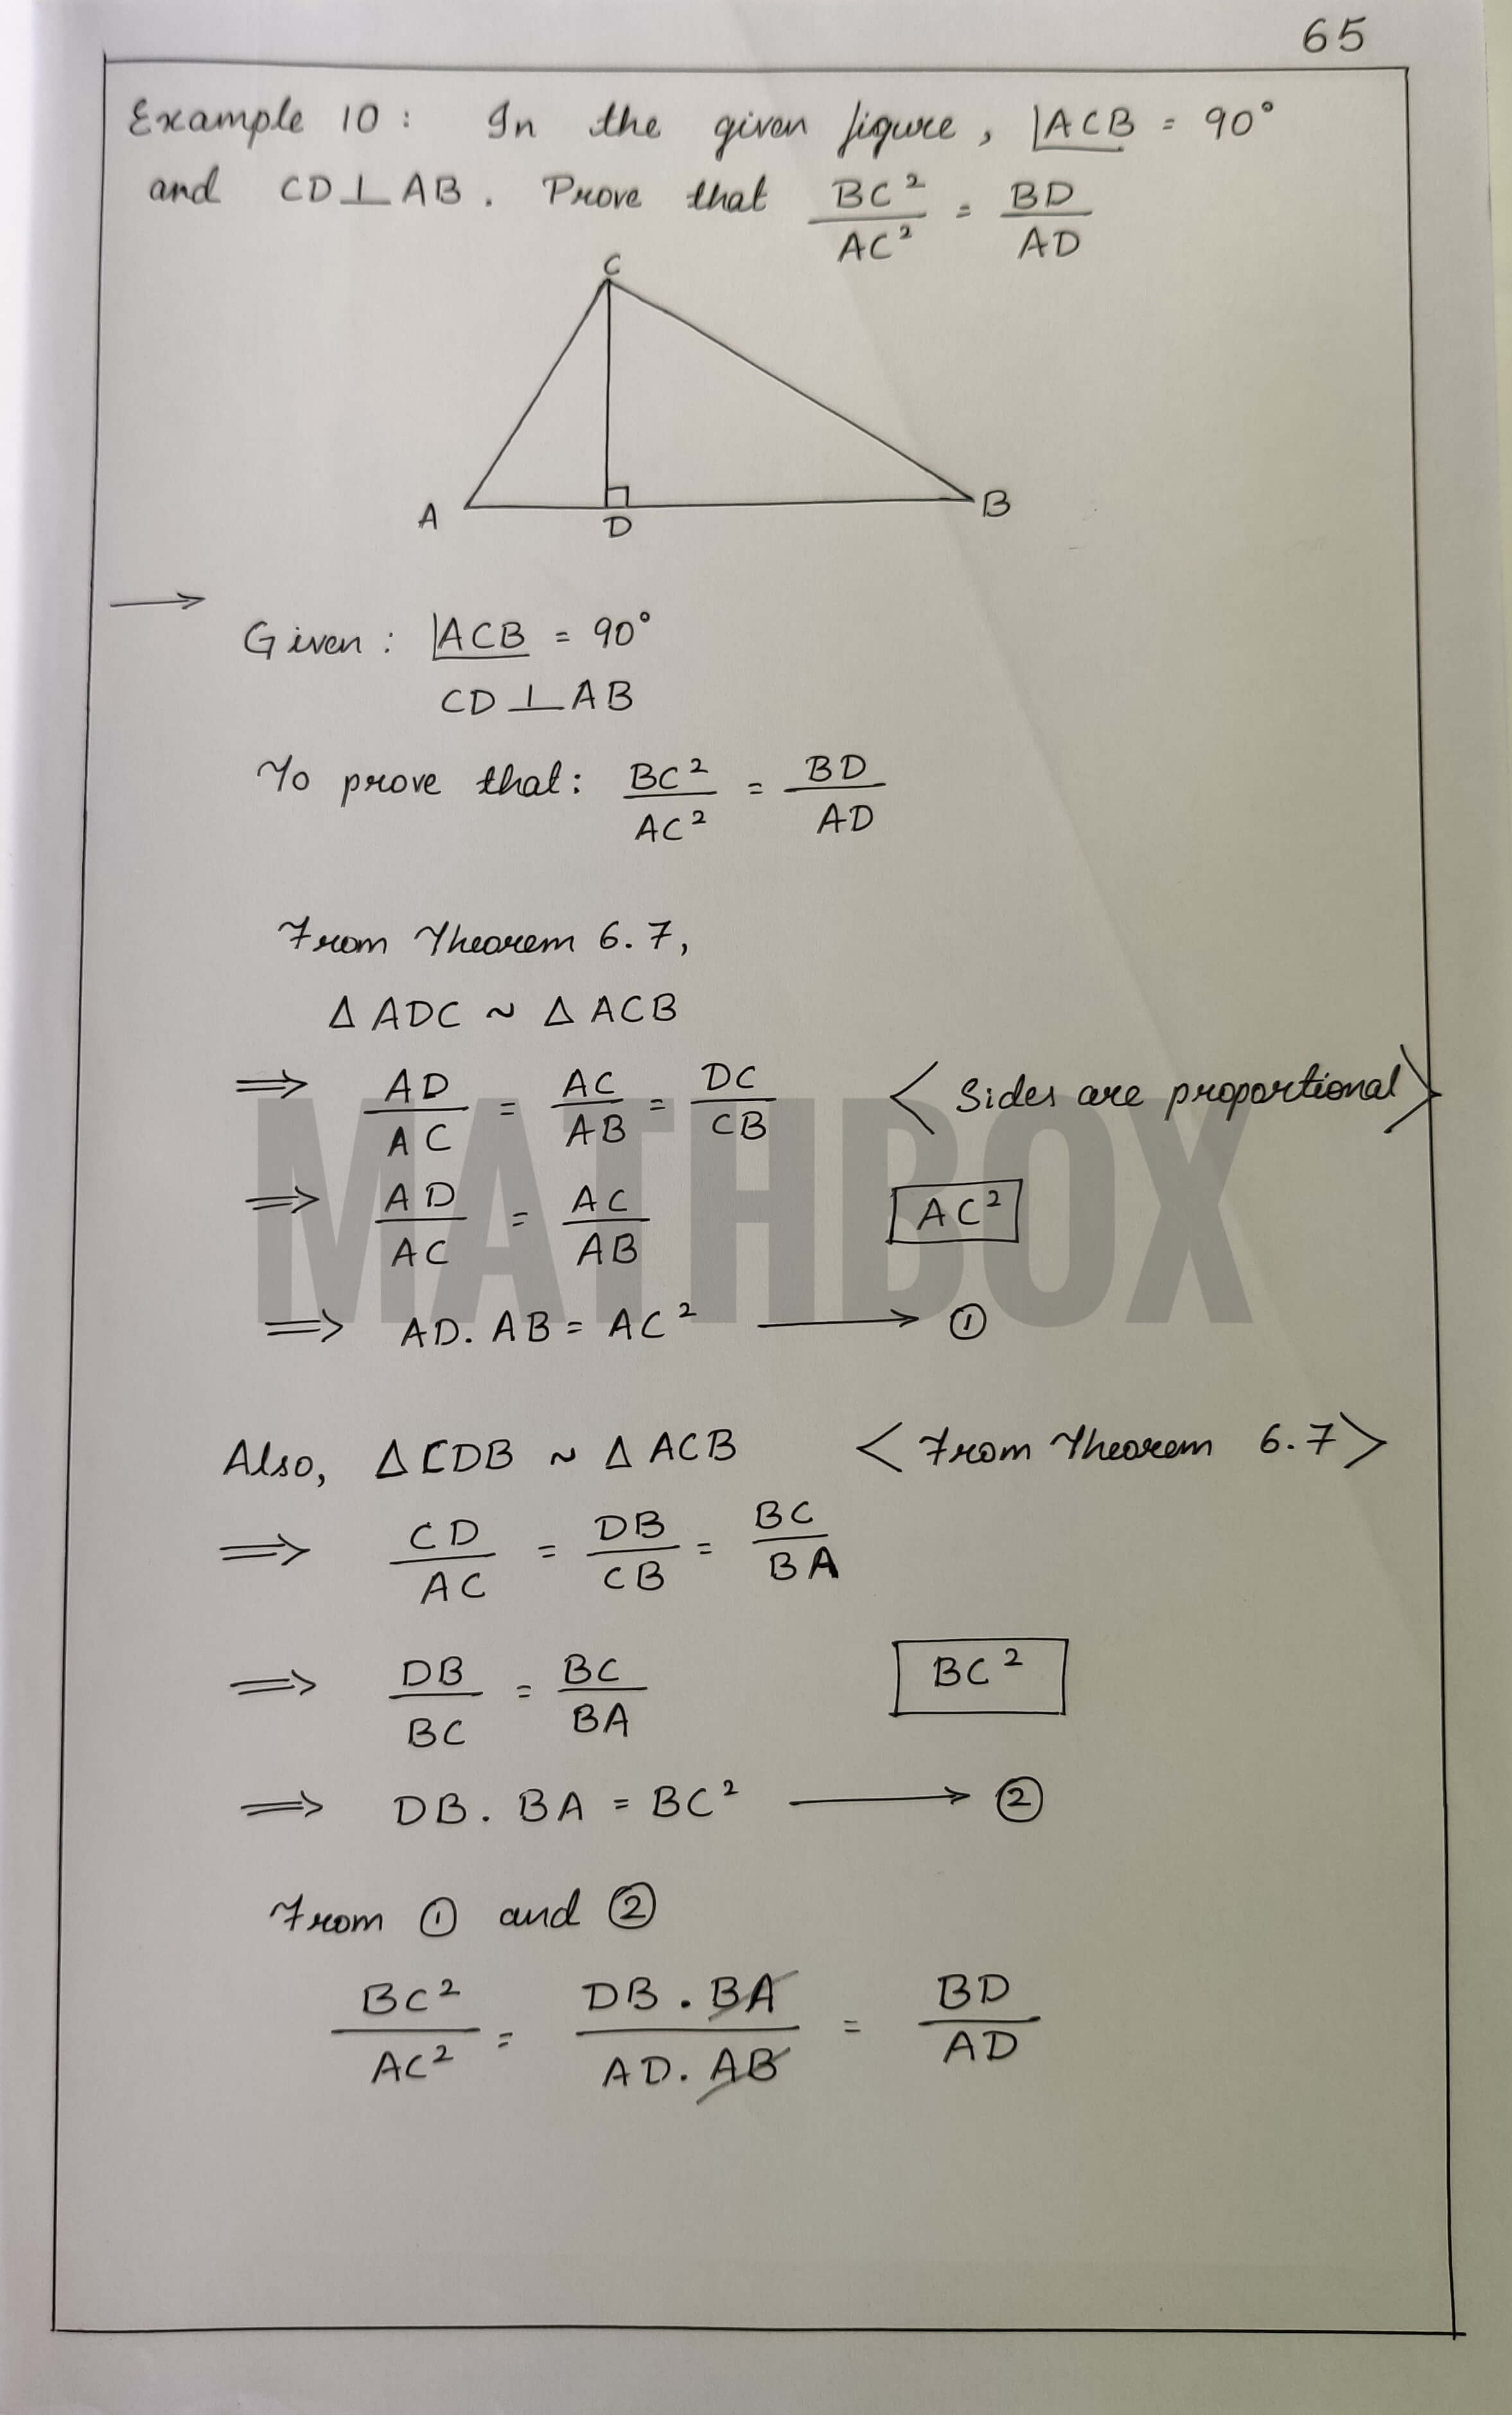 65
Example 10 : In the given figure, ∠ACB = 90°
and CD⊥AB. Prove that BC²/AC² = BD/AD
C
A D B
→
Given : ∠ACB = 90°
CD⊥AB
To prove that: BC²/AC² = BD/AD
From Theorem 6.7,
Δ ADC ~ Δ ACB
⇒ AD/AC = AC/AB = DC/CB <Sides are proportional>
⇒ AD/AC = AC/AB AC²
⇒ AD. AB = AC² → ①
MATHBOX
Also, Δ CDB ~ Δ ACB <From Theorem 6.7>
⇒ CD/AC = DB/CB = BC/BA
⇒ DB/BC = BC/BA BC²
⇒ DB. BA = BC² → ②
From ① and ②
BC²/AC² = DB . BA/AD. AB = BD/AD